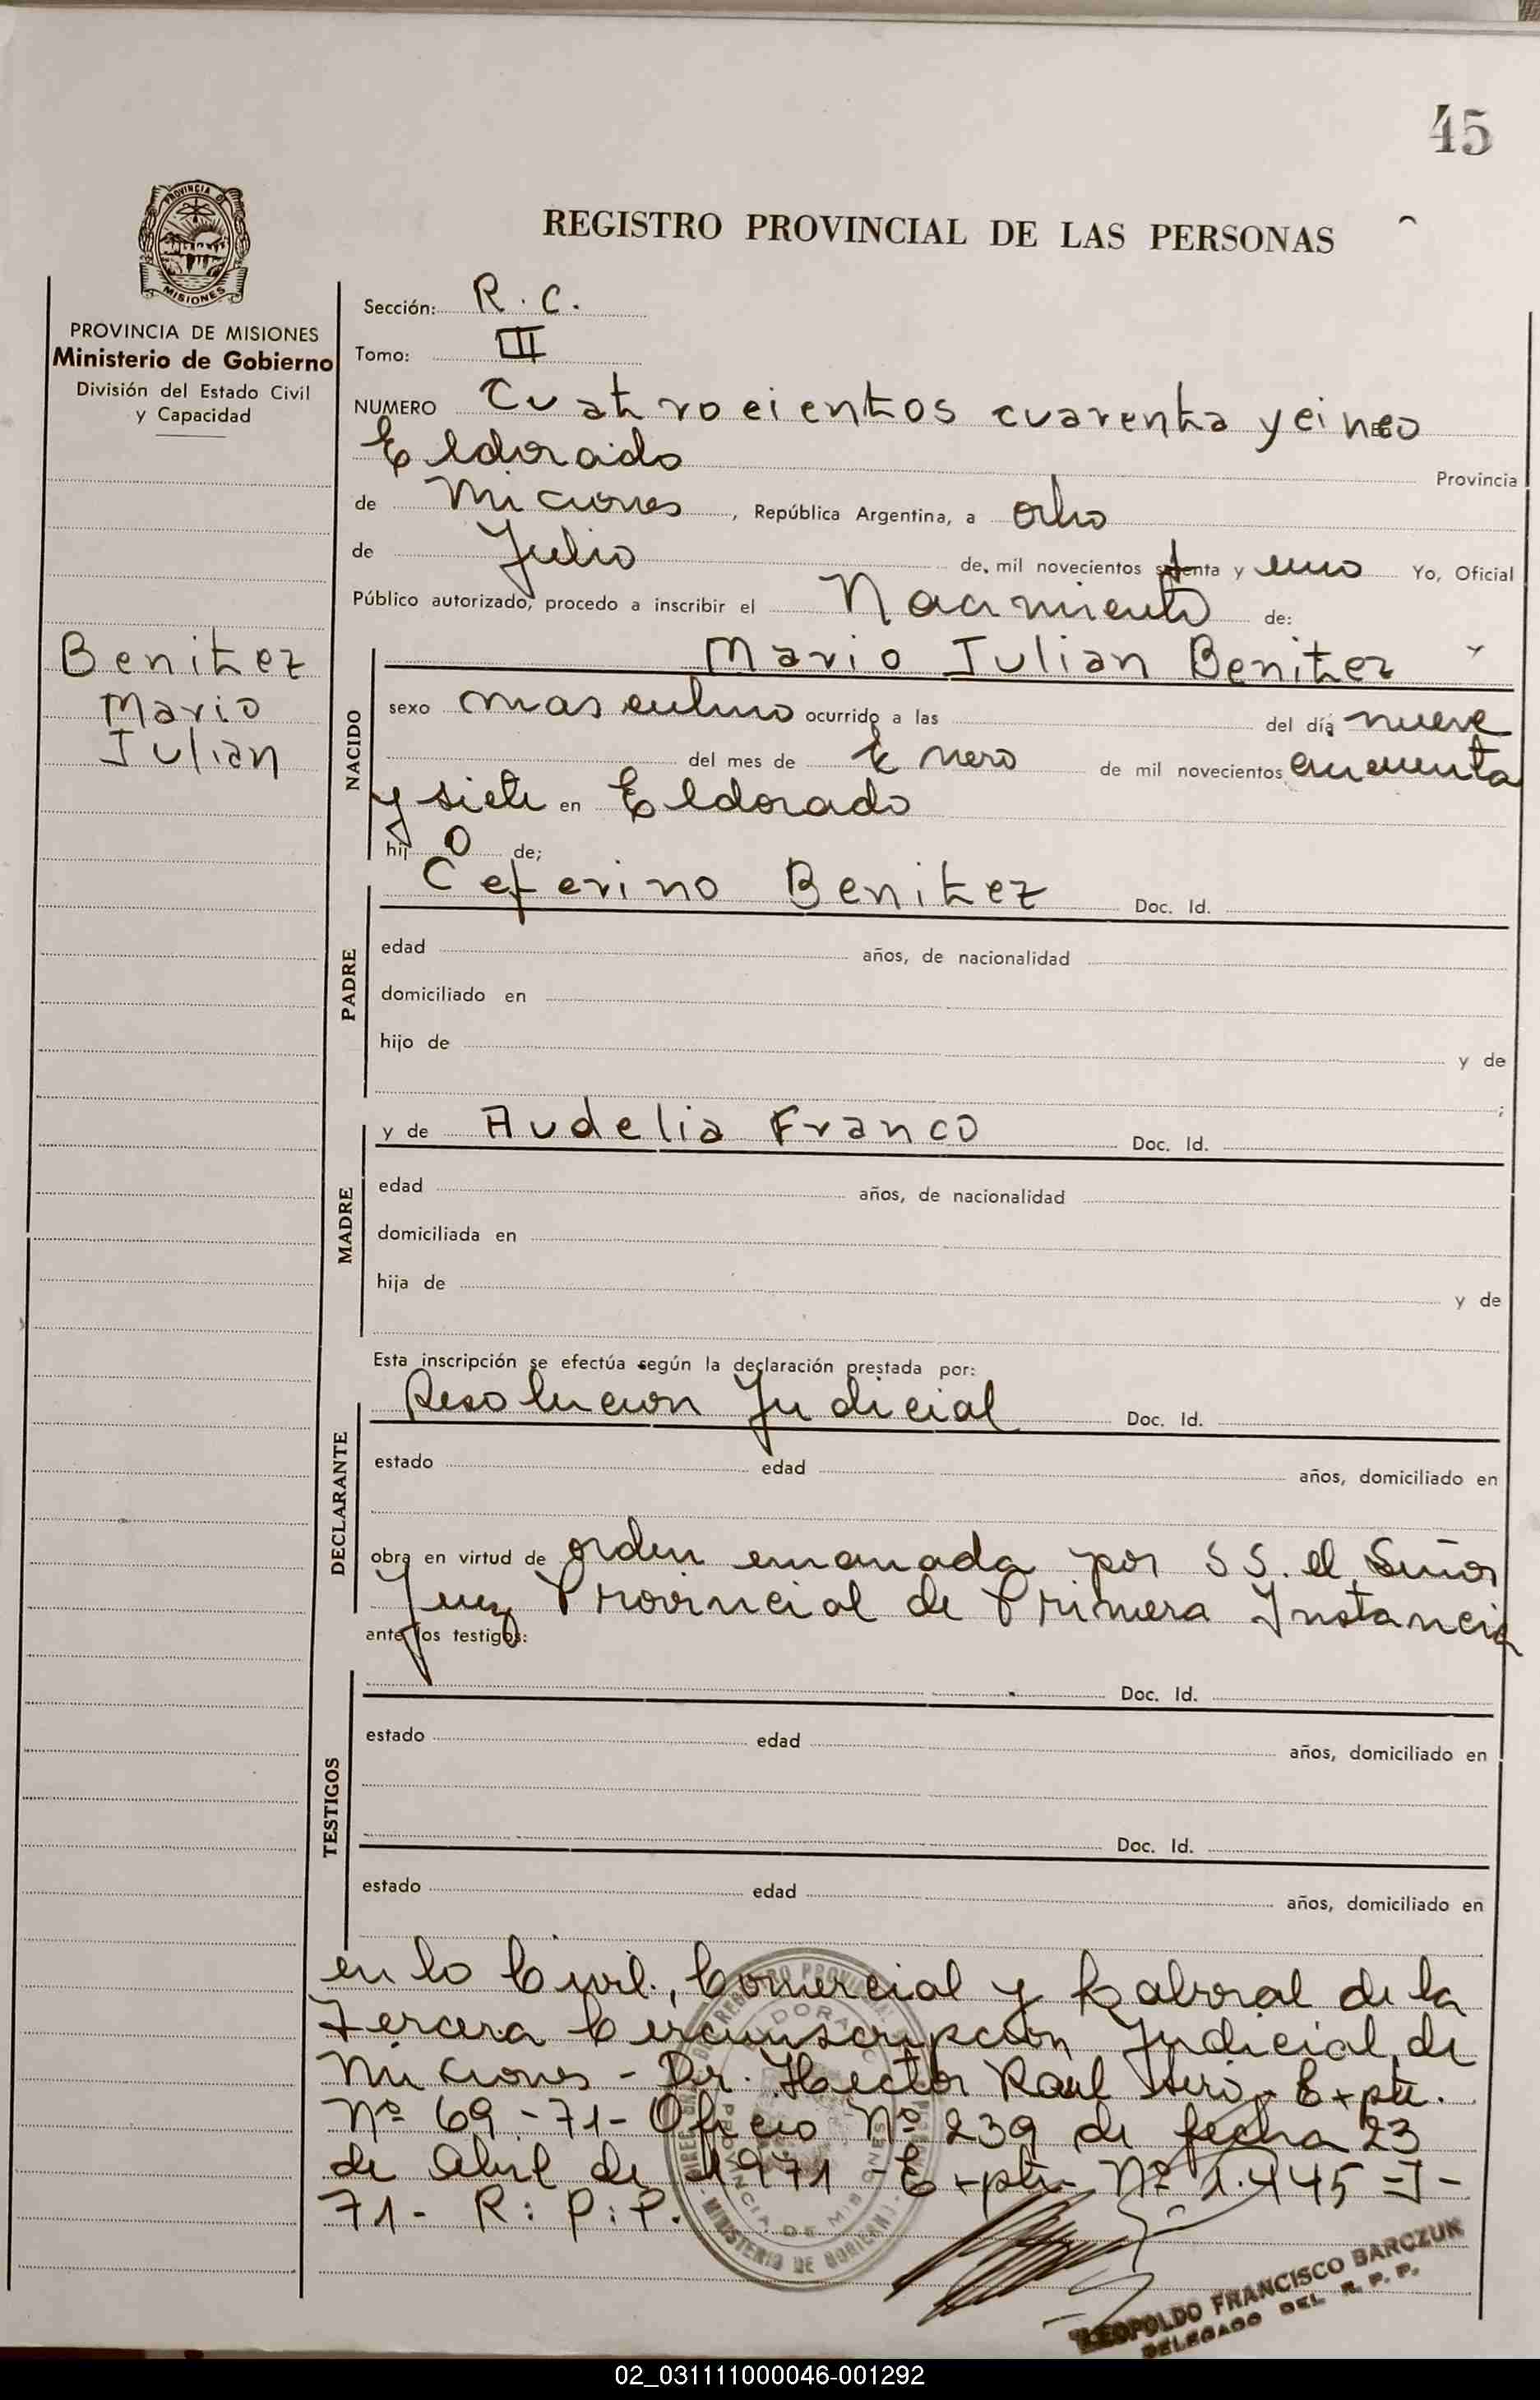 45
REGISTRO PROVINCIAL DE LAS PERSONAS
PROVINCIA
MISIONES
PROVINCIA DE MISIONES
Ministerio de Gobierno
División del Estado Civil
y Capacidad
Benitez
Mario
Julian
Sección: R. C.
Tomo: III
NUMERO Cuatrocientos cuarenta y cinco
Eldorado Provincia
de Miciones, República Argentina, a ocho
de Julio de mil novecientos setenta y uno Yo, Oficial
Público autorizado, procedo a inscribir el Nacimiento de:
Mario Julian Benitez
NACIDO
sexo masculino ocurrido a las del día nueve
del mes de Enero de mil novecientos cincuenta
y siete en Eldorado
hijo de;
Ceferino Benitez Doc. Id.
PADRE
edad años, de nacionalidad
domiciliado en
hijo de y de
;
y de Audelia Franco Doc. Id.
MADRE
edad años, de nacionalidad
domiciliada en
hija de y de
Esta inscripción se efectúa según la declaración prestada por:
Resolucion Judicial Doc. Id.
DECLARANTE
estado edad años, domiciliado en
obra en virtud de orden emanada por S S. el Señor
Juez Provincial de Primera Instancia
ante los testigos:
Doc. Id.
TESTIGOS
estado edad años, domiciliado en
Doc. Id.
estado edad años, domiciliado en
en lo Civil, Comercial y Laboral de la
Tercera Circunscripcion Judicial de
Miciones - Dr. Hector Raul Expte.
Nº 69-71- Oficio Nº 239 de fecha 23
de Abril de 1971 - Expte- Nº 1.445-J-
71- R: P: P.
ELDORADO
PROVINCIA DE MISIONES
MINISTERIO DE GOBIERNO
LEOPOLDO FRANCISCO BARCZUK
DELEGADO DEL R. P. P.
02_031111000046-001292